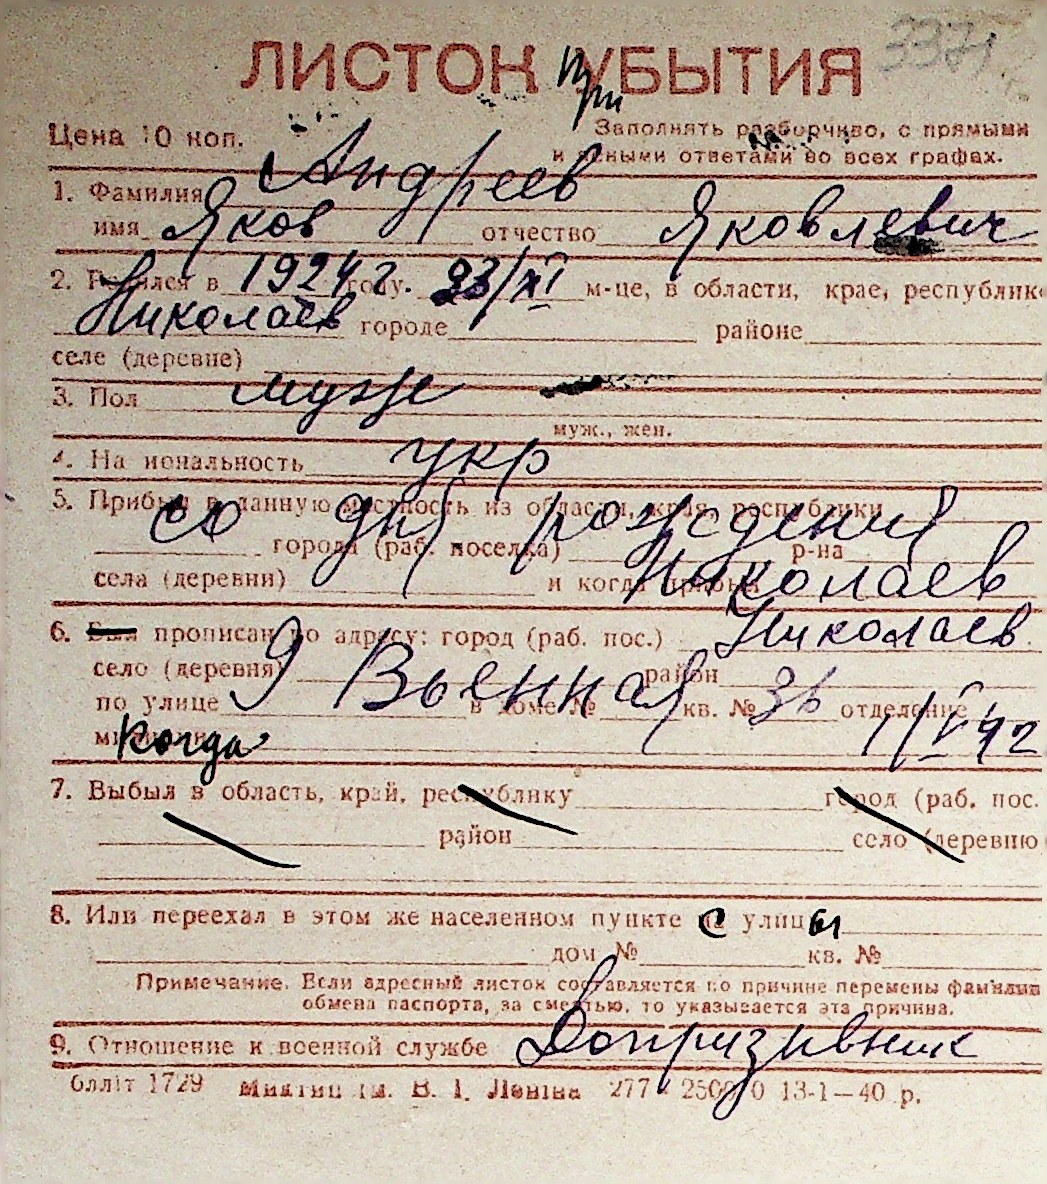 3371
ЛИСТОК УБЫТИЯ
При
Цена 10 коп.
Заполнять разборчиво, с прямыми
и ясными ответами во всех графах.
1. Фамилия Андреев
имя Яков отчество Яковлевич
2. Родился в 1924 г. году. 23/XI м-це, в области, крае, республик
Николаев городе районе
селе (деревне)
3. Пол муж
муж., жен.
4. Национальность укр
5. Прибыл в данную местность из области, края, республики
со дня рождения
города (раб. поселка) р-на
села (деревни) и когда прибыл Николаев
6. Был прописан по адресу: город (раб. пос.) Николаев
село (деревня) район
по улице 9 Военная в доме № кв. № 36 отделение
Когда 1/V 42
7. Выбыл в область, край, республику город (раб. пос.
район село (деревню
8. Или переехал в этом же населенном пункте с улицы
дом № кв. №
Примечание. Если адресный листок составляется по причине перемены фамилии
обмена паспорта, за смертью, то указывается эта причина.
9. Отношение к военной службе Допризивник
блліт 1729 В. І. Леніна 277 13-1—40 р.